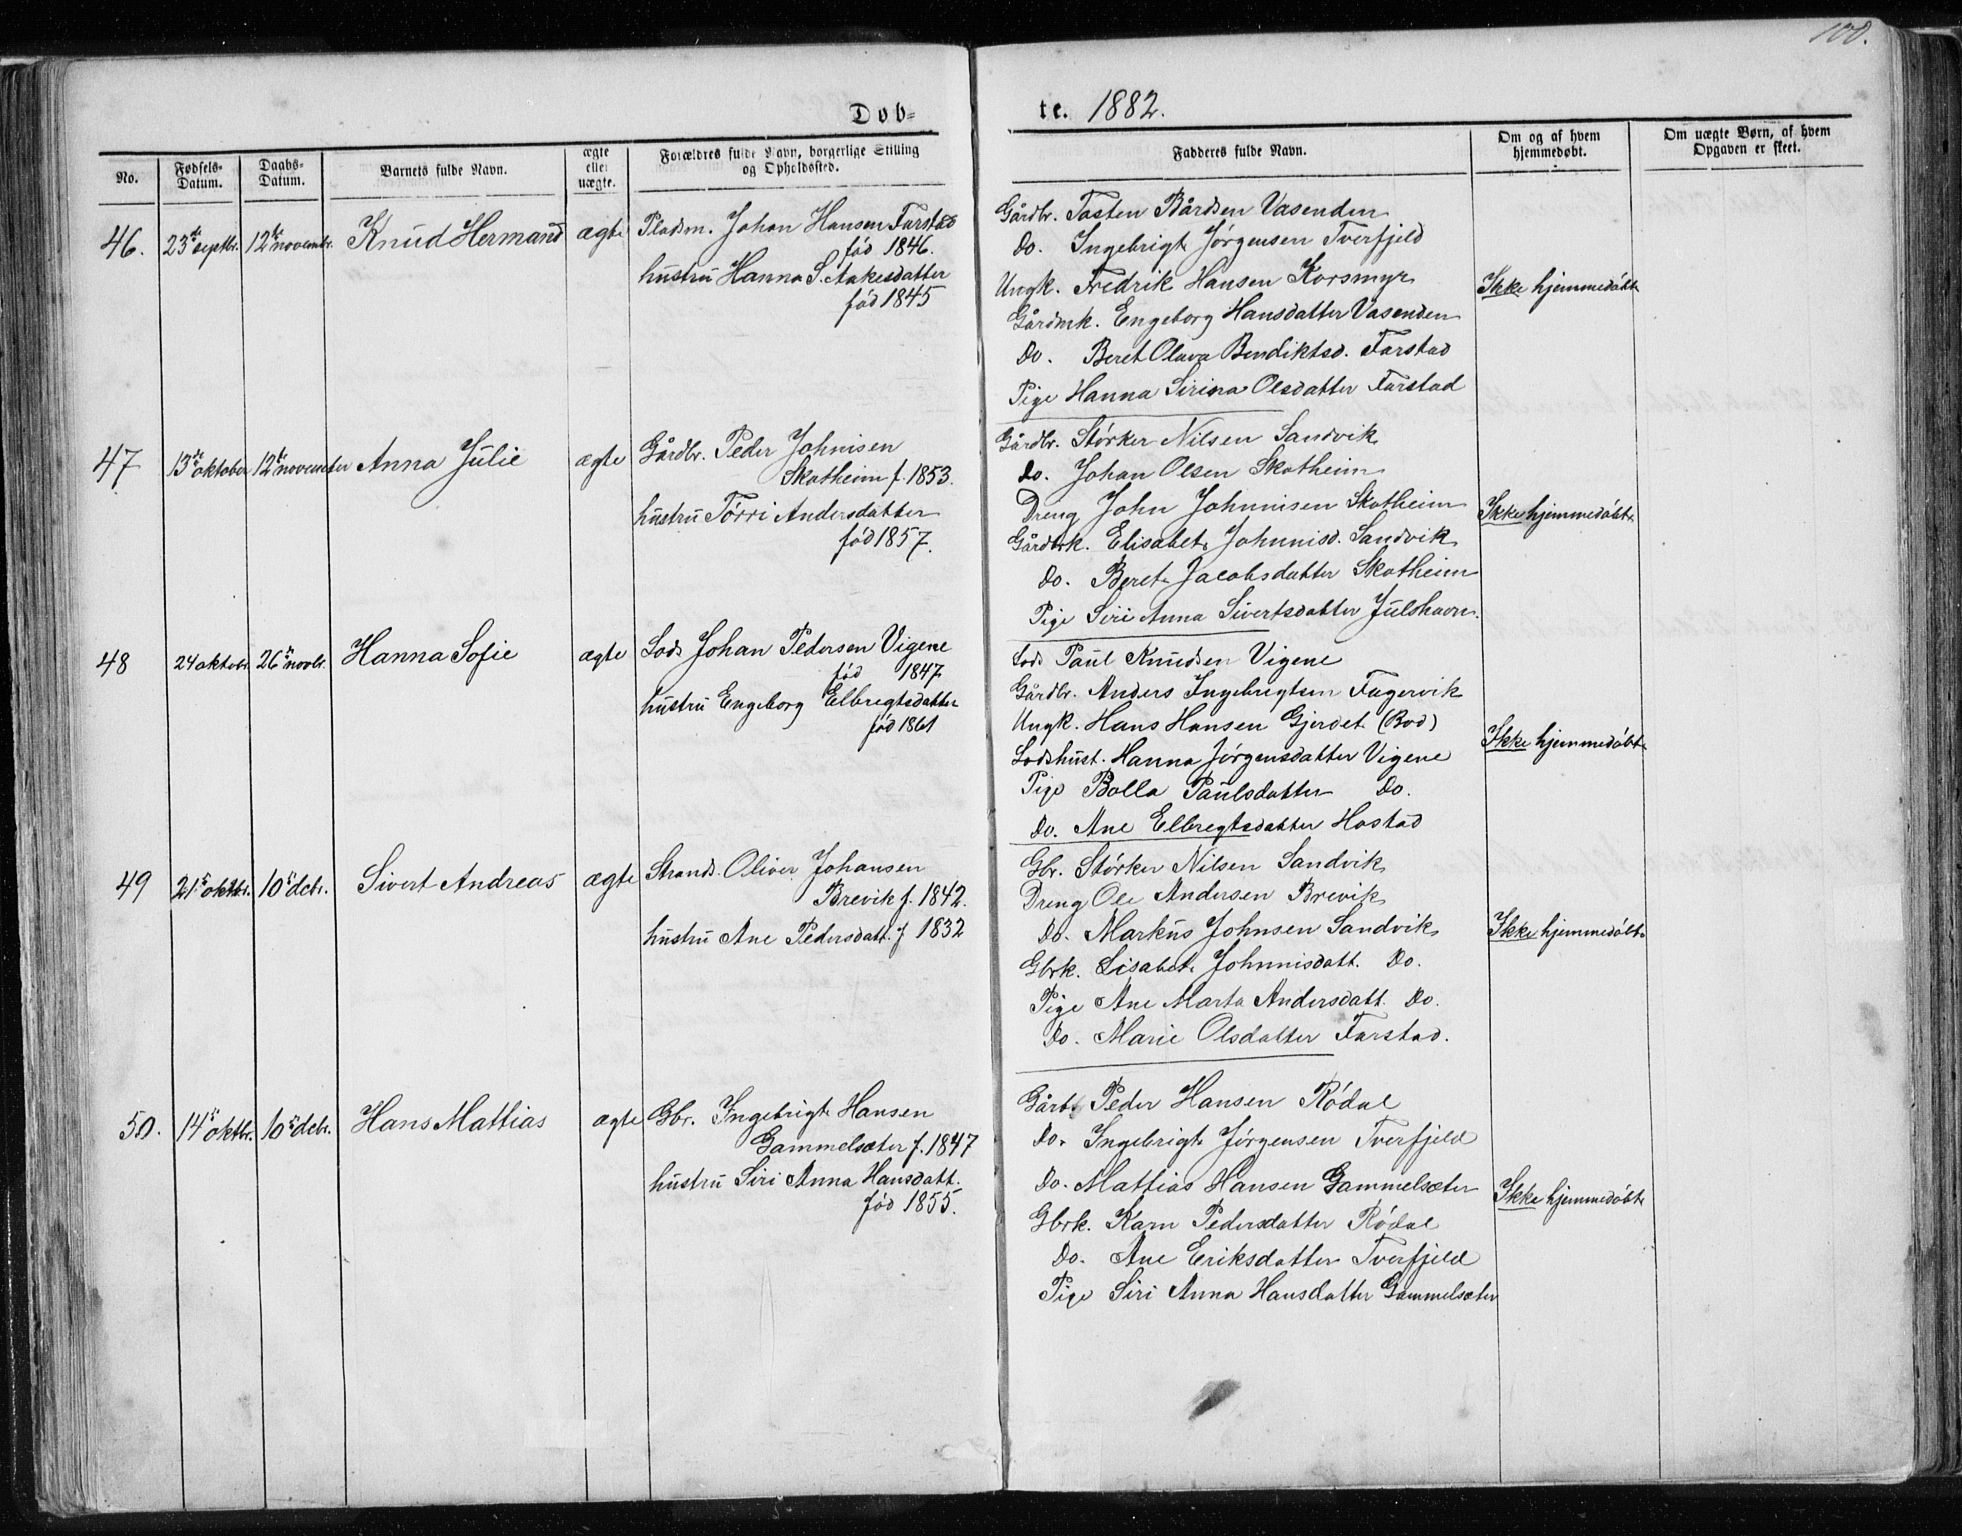 100.
Døb-
te. 1882.
No.
Fødsels-
Datum.
Daabs-
Datum.
Barnets fulde Navn.
ægte
eller
uægte.
Forældres fulde Navn, borgerlige Stilling
og Opholdssted.
Fadderes fulde Navn.
Om og af hvem
hjemmedøbt.
Om uægte Børn, af hvem
Opgaven er skeet.
46. 23de septbr. 12te novembr. Knud Hermand ægte Pladsm. Johan Hansen Farstad
fød 1846.
hustru Hanna S. Aakesdatter
fød 1845
Gårdbr. Tosten Bårdsen Vasenden
Do. Ingebrigt Jørgensen Tverfjeld
Ungk. Fredrik Hansen Korsmyr
Gårdmk. Engeborg Hansdatter Vasenden
Do. Beret Olava Bendiktsd. Farstad
Pige Hanna Sirina Olsdatter Farstad
Ikke hjemmedøbt
47 13de oktober 12te november Anna Julie ægte Gårdbr. Peder Johnisen
Skotheim f. 1853.
hustru Törri Andersdatter
fød 1857.
Gårdbr. Størker Nilsen Sandvik
Do. Johan Olsen Skotheim
Dreng John Johnnisen Skotheim
Gårdbrk. Elisabet Johnnisd. Sandvik
Do. Beret Jacobsdatter Skotheim
Pige Siri Anna Sivertsdatter Julshavn.
Ikke hjemmedøbt
48 24 oktobr. 26de novbr. Hanna Sofie ægte Lods Johan Pedersen Vigene
fød 1847
hustru Engeborg Elbregtsdatter
fød 1861
Lods Paul Knudsen Vigene
Gårdbr. Anders Ingebregtsen Fagervik
Ungk. Hans Hansen Gjerdet (Bod)
Lodshust. Hanna Jørgensdatter Vigene
Pige Bolla Paulsdatter Do.
Do. Ane Elbregtsdatter Hostad
Ikke hjemmedøbt
49 21de oktbr. 10de dcbr. Sivert Andreas ægte Strands. Oliver Johansen
Brevik f. 1842.
hustru Ane Pedersdatt. f 1832
Gbr. Størker Nilsen Sandvik
Dreng Ole Andersen Brevik
Do. Markus Johnsen Sandvik
Gbrk. Lisabet Johnnisdatt. Do.
Pige Ane Marta Andersdatt. Do.
Do. Marie Olsdatter Farstad.
Ikke hjemmedøbt
50. 14de oktbr. 10de dcbr. Hans Mattias ægte Gbr. Ingebrigt Hansen
Gammelsæter f. 1847
hustru Siri Anna Hansdatt.
fød 1855.
Gårbr Peder Hansen Rødal
Do. Ingebrigt Jørgensen Tverfjeld
Do. Mattias Hansen Gammelsæter
Gbrk. Karn Pedersdatter Rødal
Do. Ane Eriksdatter Tverfjeld
Pige Siri Anna Hansdatter Gammelsæter
Ikke hjemmedøbt